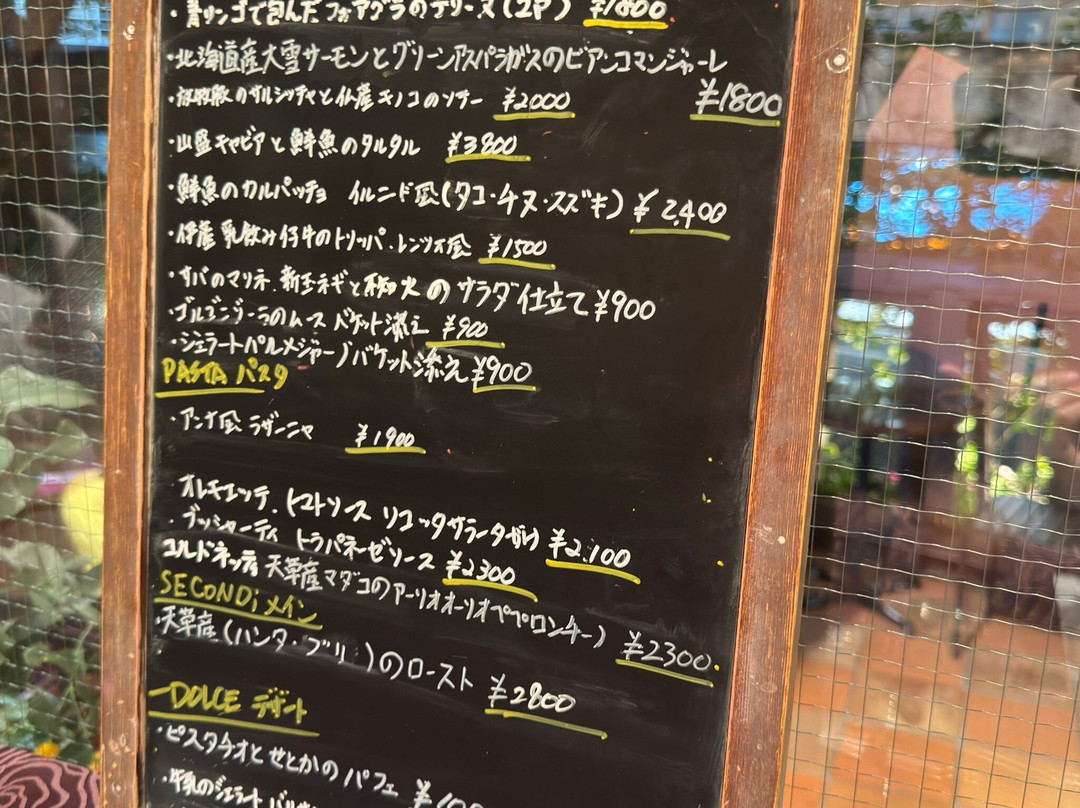 ・青リンゴで包んだフォアグラのテリーヌ(2P) ¥1800
・北海道産大雪サーモンとグリーンアスパラガスのビアンコマンジャーレ ¥1800
のサルシッチャと仏産キノコのソテー ¥2000
・山盛キャビアと鮮魚のタルタル ¥3800
・鮮魚のカルパッチョ イルニード風(タコ・チヌ・スズキ) ¥2,400
・伊産乳飲み仔牛のトリッパ ¥1500
・サバのマリネ、新玉ネギと のサラダ仕立て ¥900
・ゴルゴンゾーラのムース バケット添え ¥900
・ジェラートパルメジャーノ バケット添え ¥900
PASTA パスタ
・アンナ風 ラザーニャ ¥1900
オレキエッテ、トマトソース リコッタサラータがけ ¥2.100
・ブッシャーティ トラパネーゼソース ¥2300
コルドネッティ 天草産マダコのアーリオオーリオペペロンチーノ ¥2300
SECONDi メイン
・天草産(ハンタ・ブリ )のロースト ¥2800
DOLCE デザート
・ピスタチオとせとかのパフェ